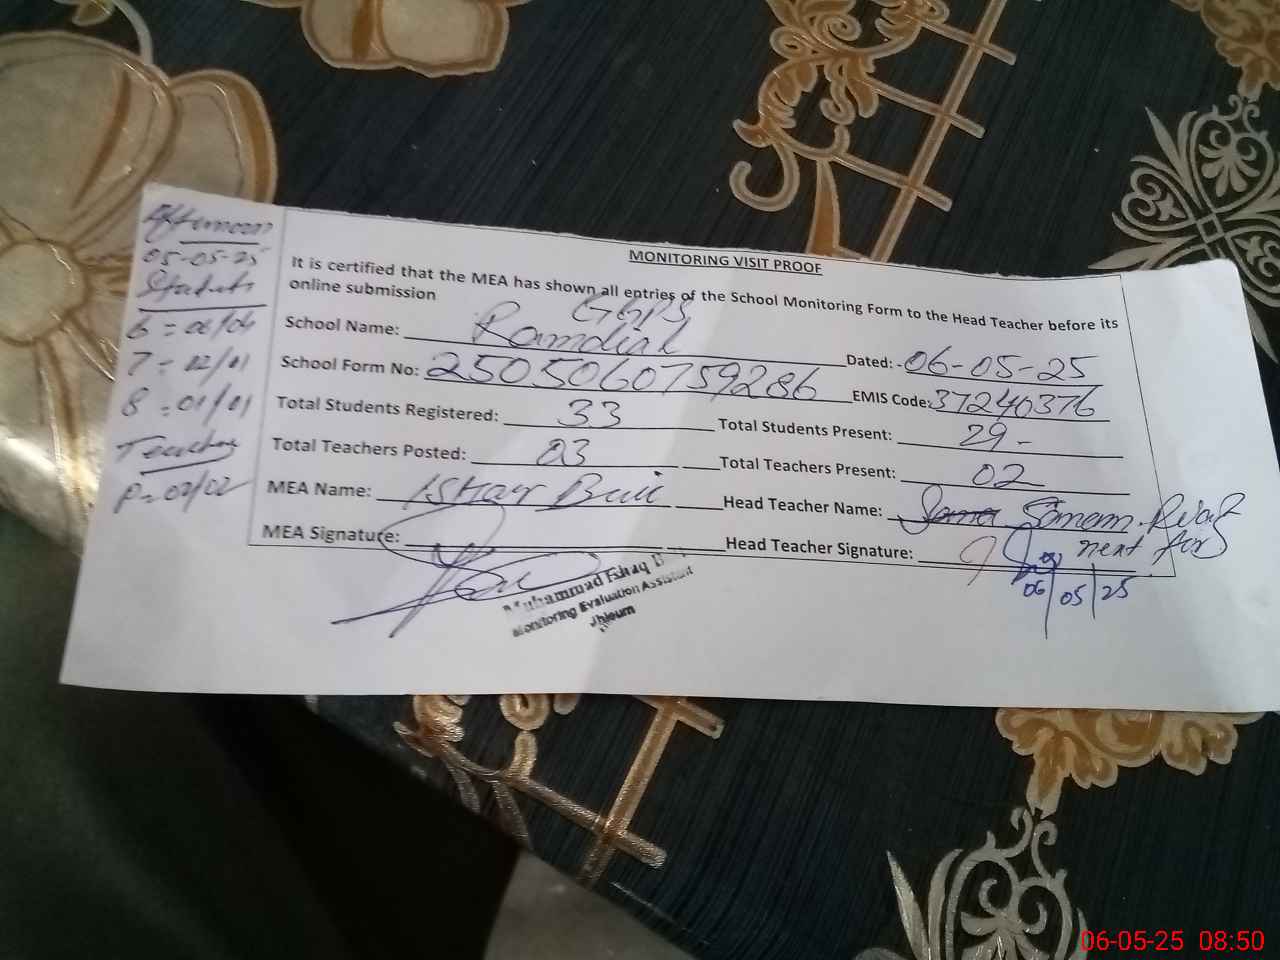 MONITORING VISIT PROOF
It is certified that the MEA has shown all entries of the School Monitoring Form to the Head Teacher before its
online submission
GGPS
School Name: Ramdial
Dated: - 06-05-25
School Form No: 2505060759286
EMIS Code: 37240376
Total Students Registered: 33
Total Students Present: 29-
Total Teachers Posted: 03
Total Teachers Present: 02
MEA Name: Ishaq Butt
Head Teacher Name: Saman Riaz
MEA Signature:
Head Teacher Signature:
06/05/25
Muhammad Ishaq
Monitoring Evaluation Assistant
Jhleum
Afternoon
05-05-25
Students
6 = 06/04
7 = 02/01
8 = 01/01
Teachers
P= 02/02
06-05-25 08:50